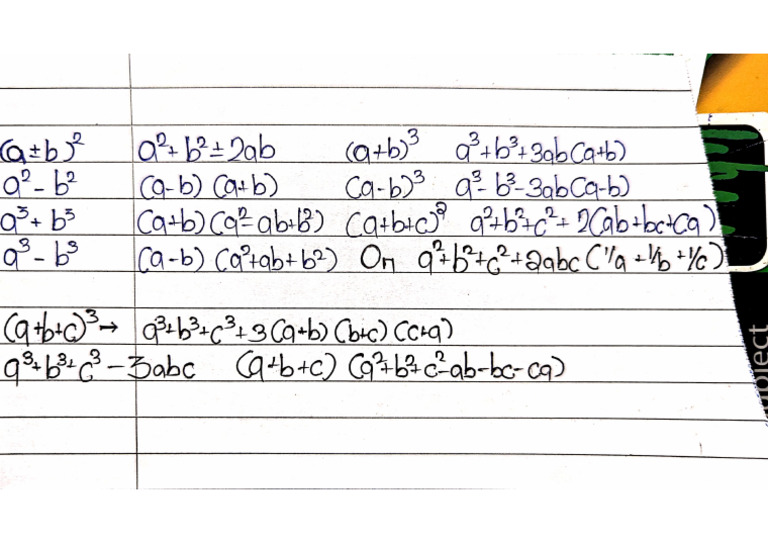 (a±b)² a²+b²±2ab (a+b)³ a³+b³+3ab(a+b)
a²-b² (a-b) (a+b) (a-b)³ a³-b³-3ab(a-b)
a³+b³ (a+b) (a²-ab+b²) (a+b+c)² a²+b²+c²+2(ab+bc+ca)
a³-b³ (a-b) (a²+ab+b²) Or a²+b²+c²+2abc(1/a+1/b+1/c)
(a+b+c)³→ a³+b³+c³+3(a+b) (b+c) (c+a)
a³+b³+c³-3abc (a+b+c) (a²+b²+c²-ab-bc-ca)